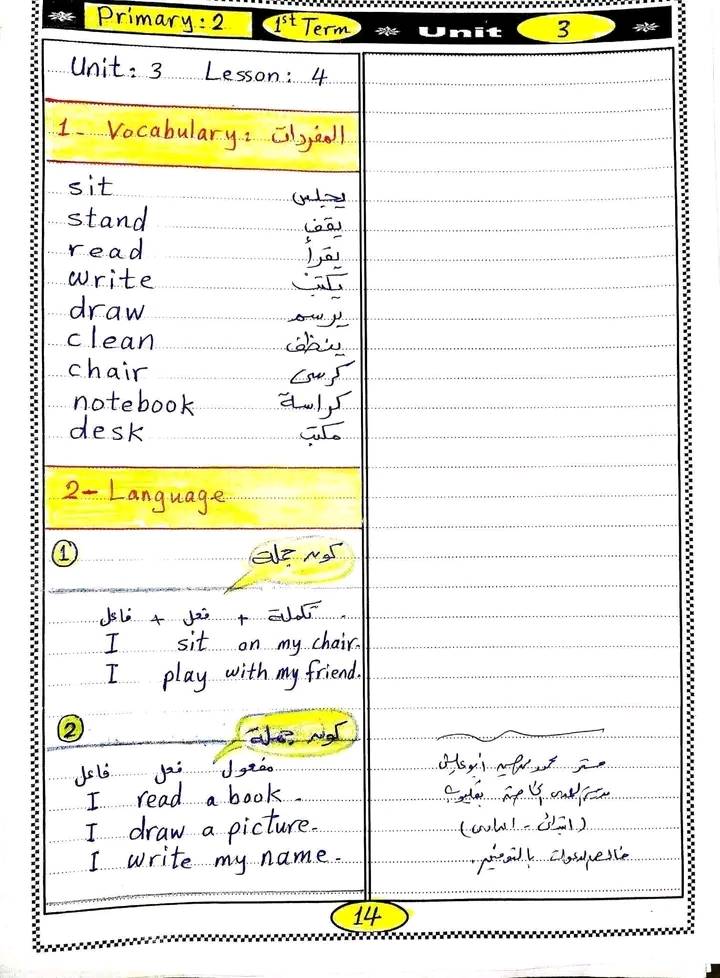 Primary: 2 1st Term Unit 3
Unit: 3 Lesson: 4
1- Vocabulary: المفردات
sit يجلس
stand يقف
read يقرأ
write يكتب
draw يرسم
clean ينظف
chair كرسى
notebook كراسة
desk مكتب
2- Language
1 كون جملة
فاعل + فعل + تكملة .
I sit on my chair.
I play with my friend.
2 كون جملة
فاعل فعل مفعول
I read a book.
I draw a picture.
I write my name.
مستر محمود
الخاصة بقليوب
خالص الدعوات بالتوفيق.
14